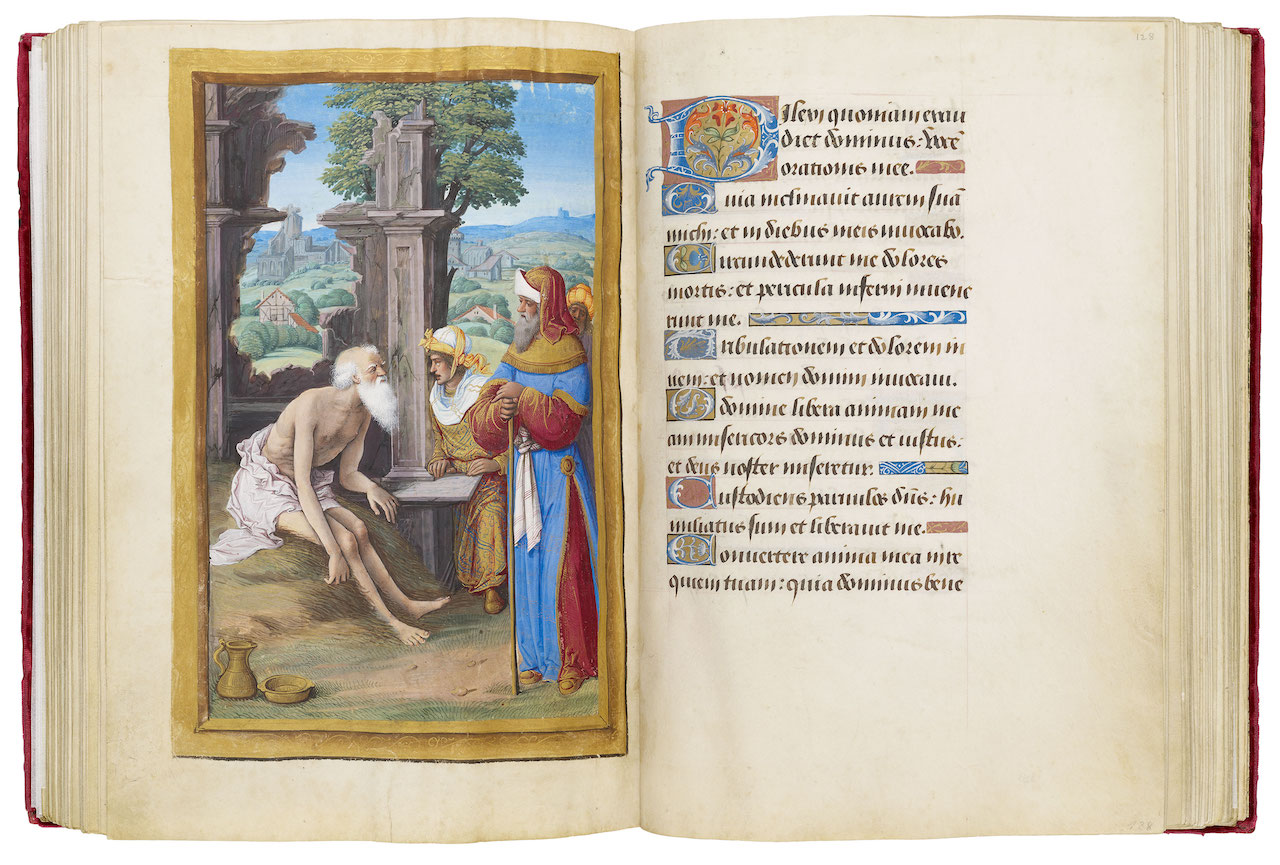 128
Dilexi quoniam exau
diet dominus: vocē
orationis mee.
Quia inclinavit aurem suā
michi: et in diebus meis invocabo.
Circundederunt me dolores
mortis: et pericula inferni invene
runt me.
Tribulationem et dolorem in
veni: et nomen domini invocavi.
O domine libera animam me
am misericors dominus et iustus:
et deus noster miseretur.
Custodiens parvulos dn̄s: hu
miliatus sum et liberavit me.
Convertere anima mea in re
quiem tuam: quia dominus bene